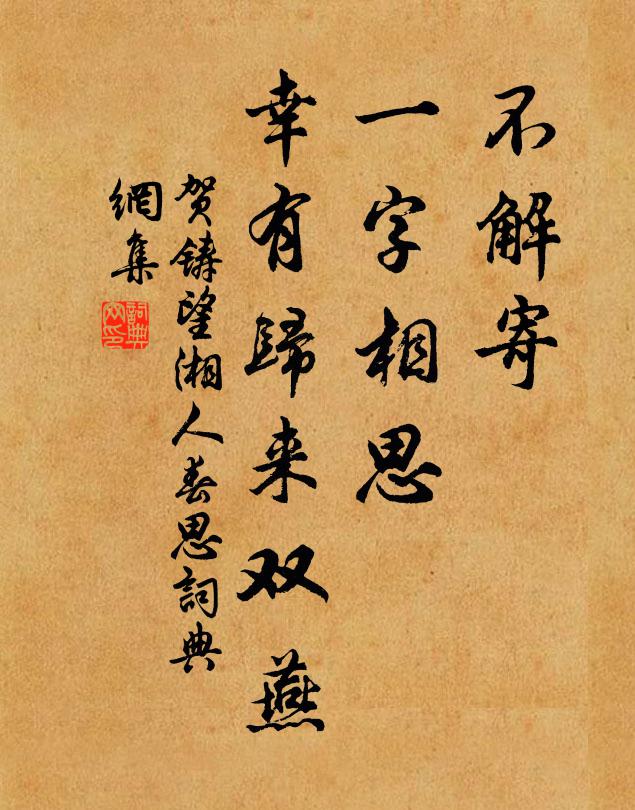 不解寄
一字相思
幸有歸来双燕
贺鑄望湘人春思詞典
網集
詞典
网印